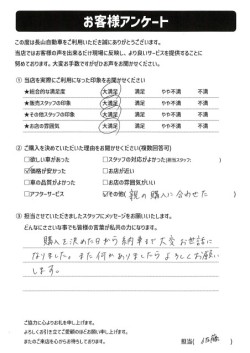 お客様アンケート
この度は長山自動車をご利用いただき誠にありがとうございます。
当店ではお客様の声を出来るだけ現場に反映し、より良いサービスを提供することに
努めております。大変お手数ですがぜひお声をお聞かせください。
① 当店を実際にご利用になった印象をお聞かせください
★総合的な満足度 大満足 満足 やや不満 不満
★販売スタッフの印象 大満足 満足 やや不満 不満
★その他スタッフの印象 大満足 満足 やや不満 不満
★お店の雰囲気 大満足 満足 やや不満 不満
② ご購入を決めていただいた理由をお聞かせください(複数回答可)
□欲しい車があった □スタッフの対応がよかった(担当スタッフ: )
☑価格が安かった □お店が近い
□車の品質がよかった □お店の雰囲気がいい
□アフターサービス ☑その他( 親の購入に合わせた )
③ 担当させていただきましたスタッフにメッセージをお願いいたします。
どんなにささいな事でも皆様の言葉が私共の力になります。
購入を決めた日から納車まで大変お世話に
なりました。また何かありましたらよろしくお願い
します。
ご協力に心よりお礼を申し上げます。
よろしくお引き立てご愛顧のほどお願い申し上げます。
またのご来店を心からお待ちしております。
担当( 佐藤 )